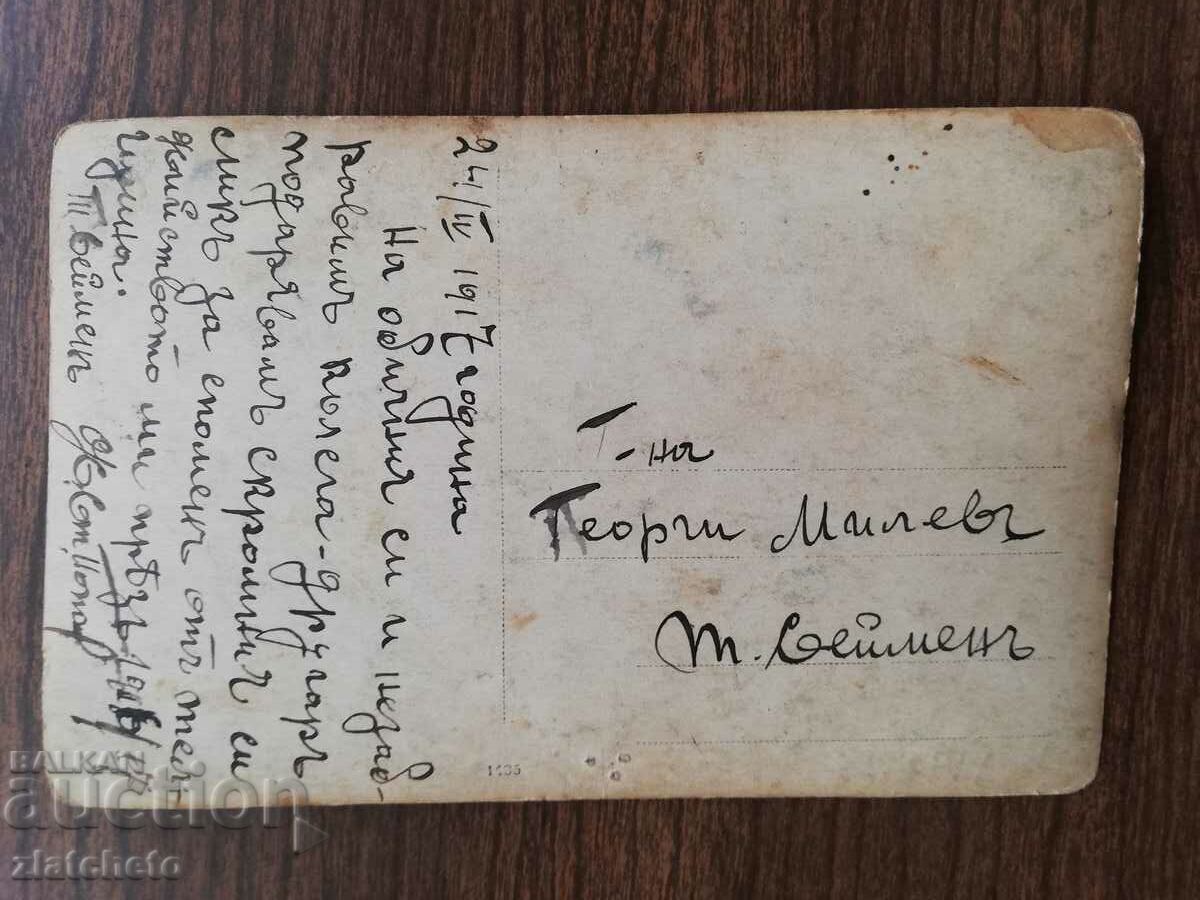 24/IV 1917 година
На обичния си и незаб-
равимъ колега-другарь
подарявамъ скромния си
ликъ за споменъ отъ тел-
жийството ми прѣзъ 1916/17
Т Сейменъ
Г-на
Георги Милевъ
Т. Сейменъ
1435
BALKAN
auction
zlatcheto